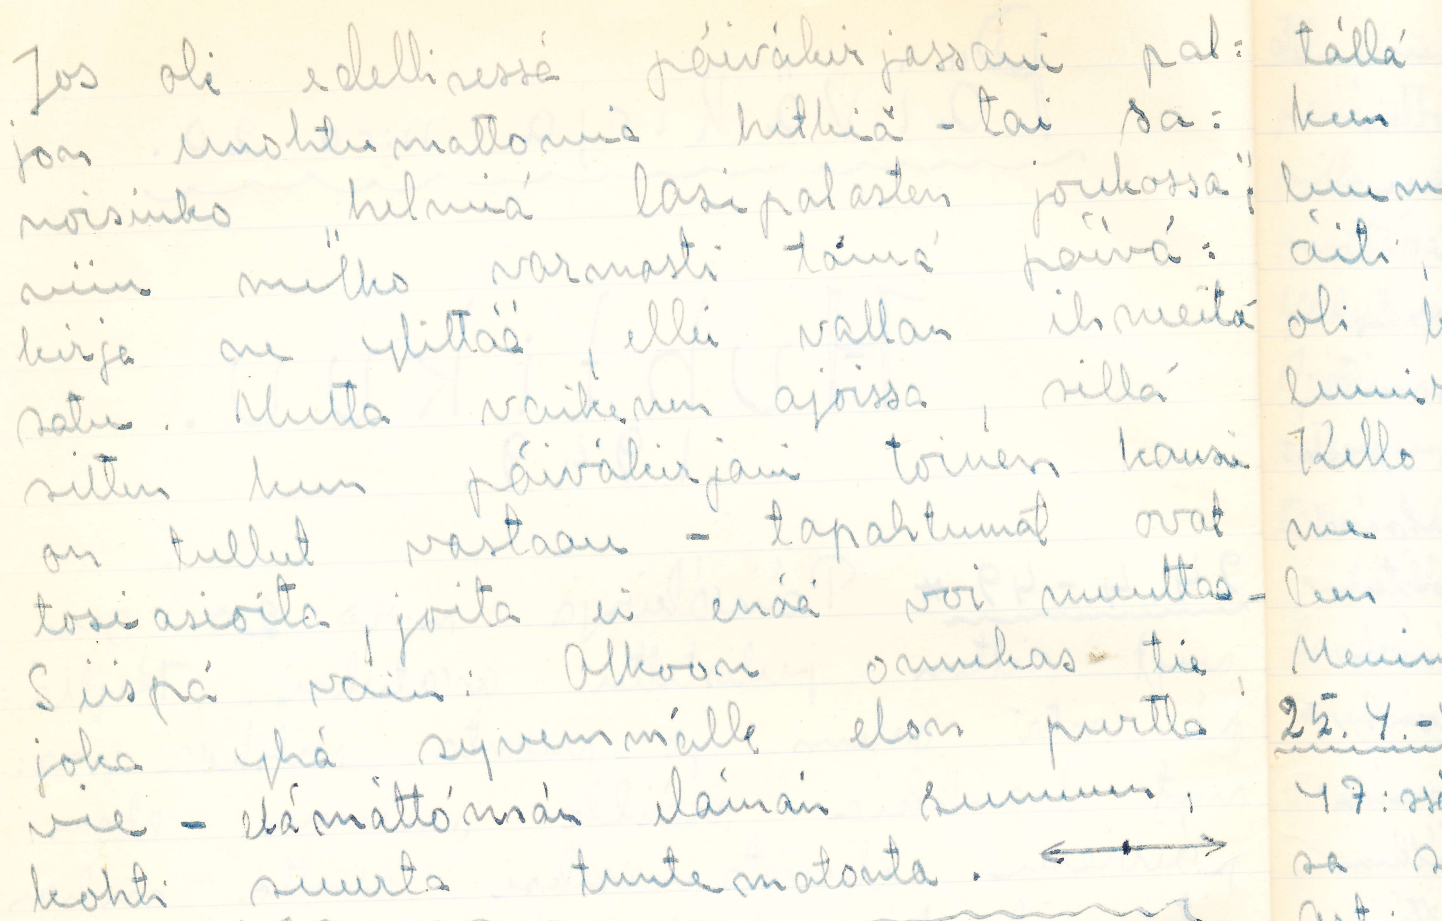 Jos oli edellisessä päiväkirjassani pal:
jon unohtumattomia hetkiä - tai sa:
noisinko "helmiä lasipalasten joukossa",
niin melko varmasti tämä päivä:
kirja ne ylittää, ellei vallan ihmeitä
satu. Mutta vaikenen ajoissa, sillä
sitten kun päiväkirjani toinen kansi
on tullut vastaan - tapahtumat ovat
tosiasioita, joita ei enää voi muuttaa -
Siispä vain: Olkoon onnekas tie,
joka yhä syvemmälle elon purtta
vie - elämättömän elämän summun,
kohti suurta tuntematonta.
tällä
kun
äiti,
oli
Kello
me
25.4.-
47:ssä
sa s